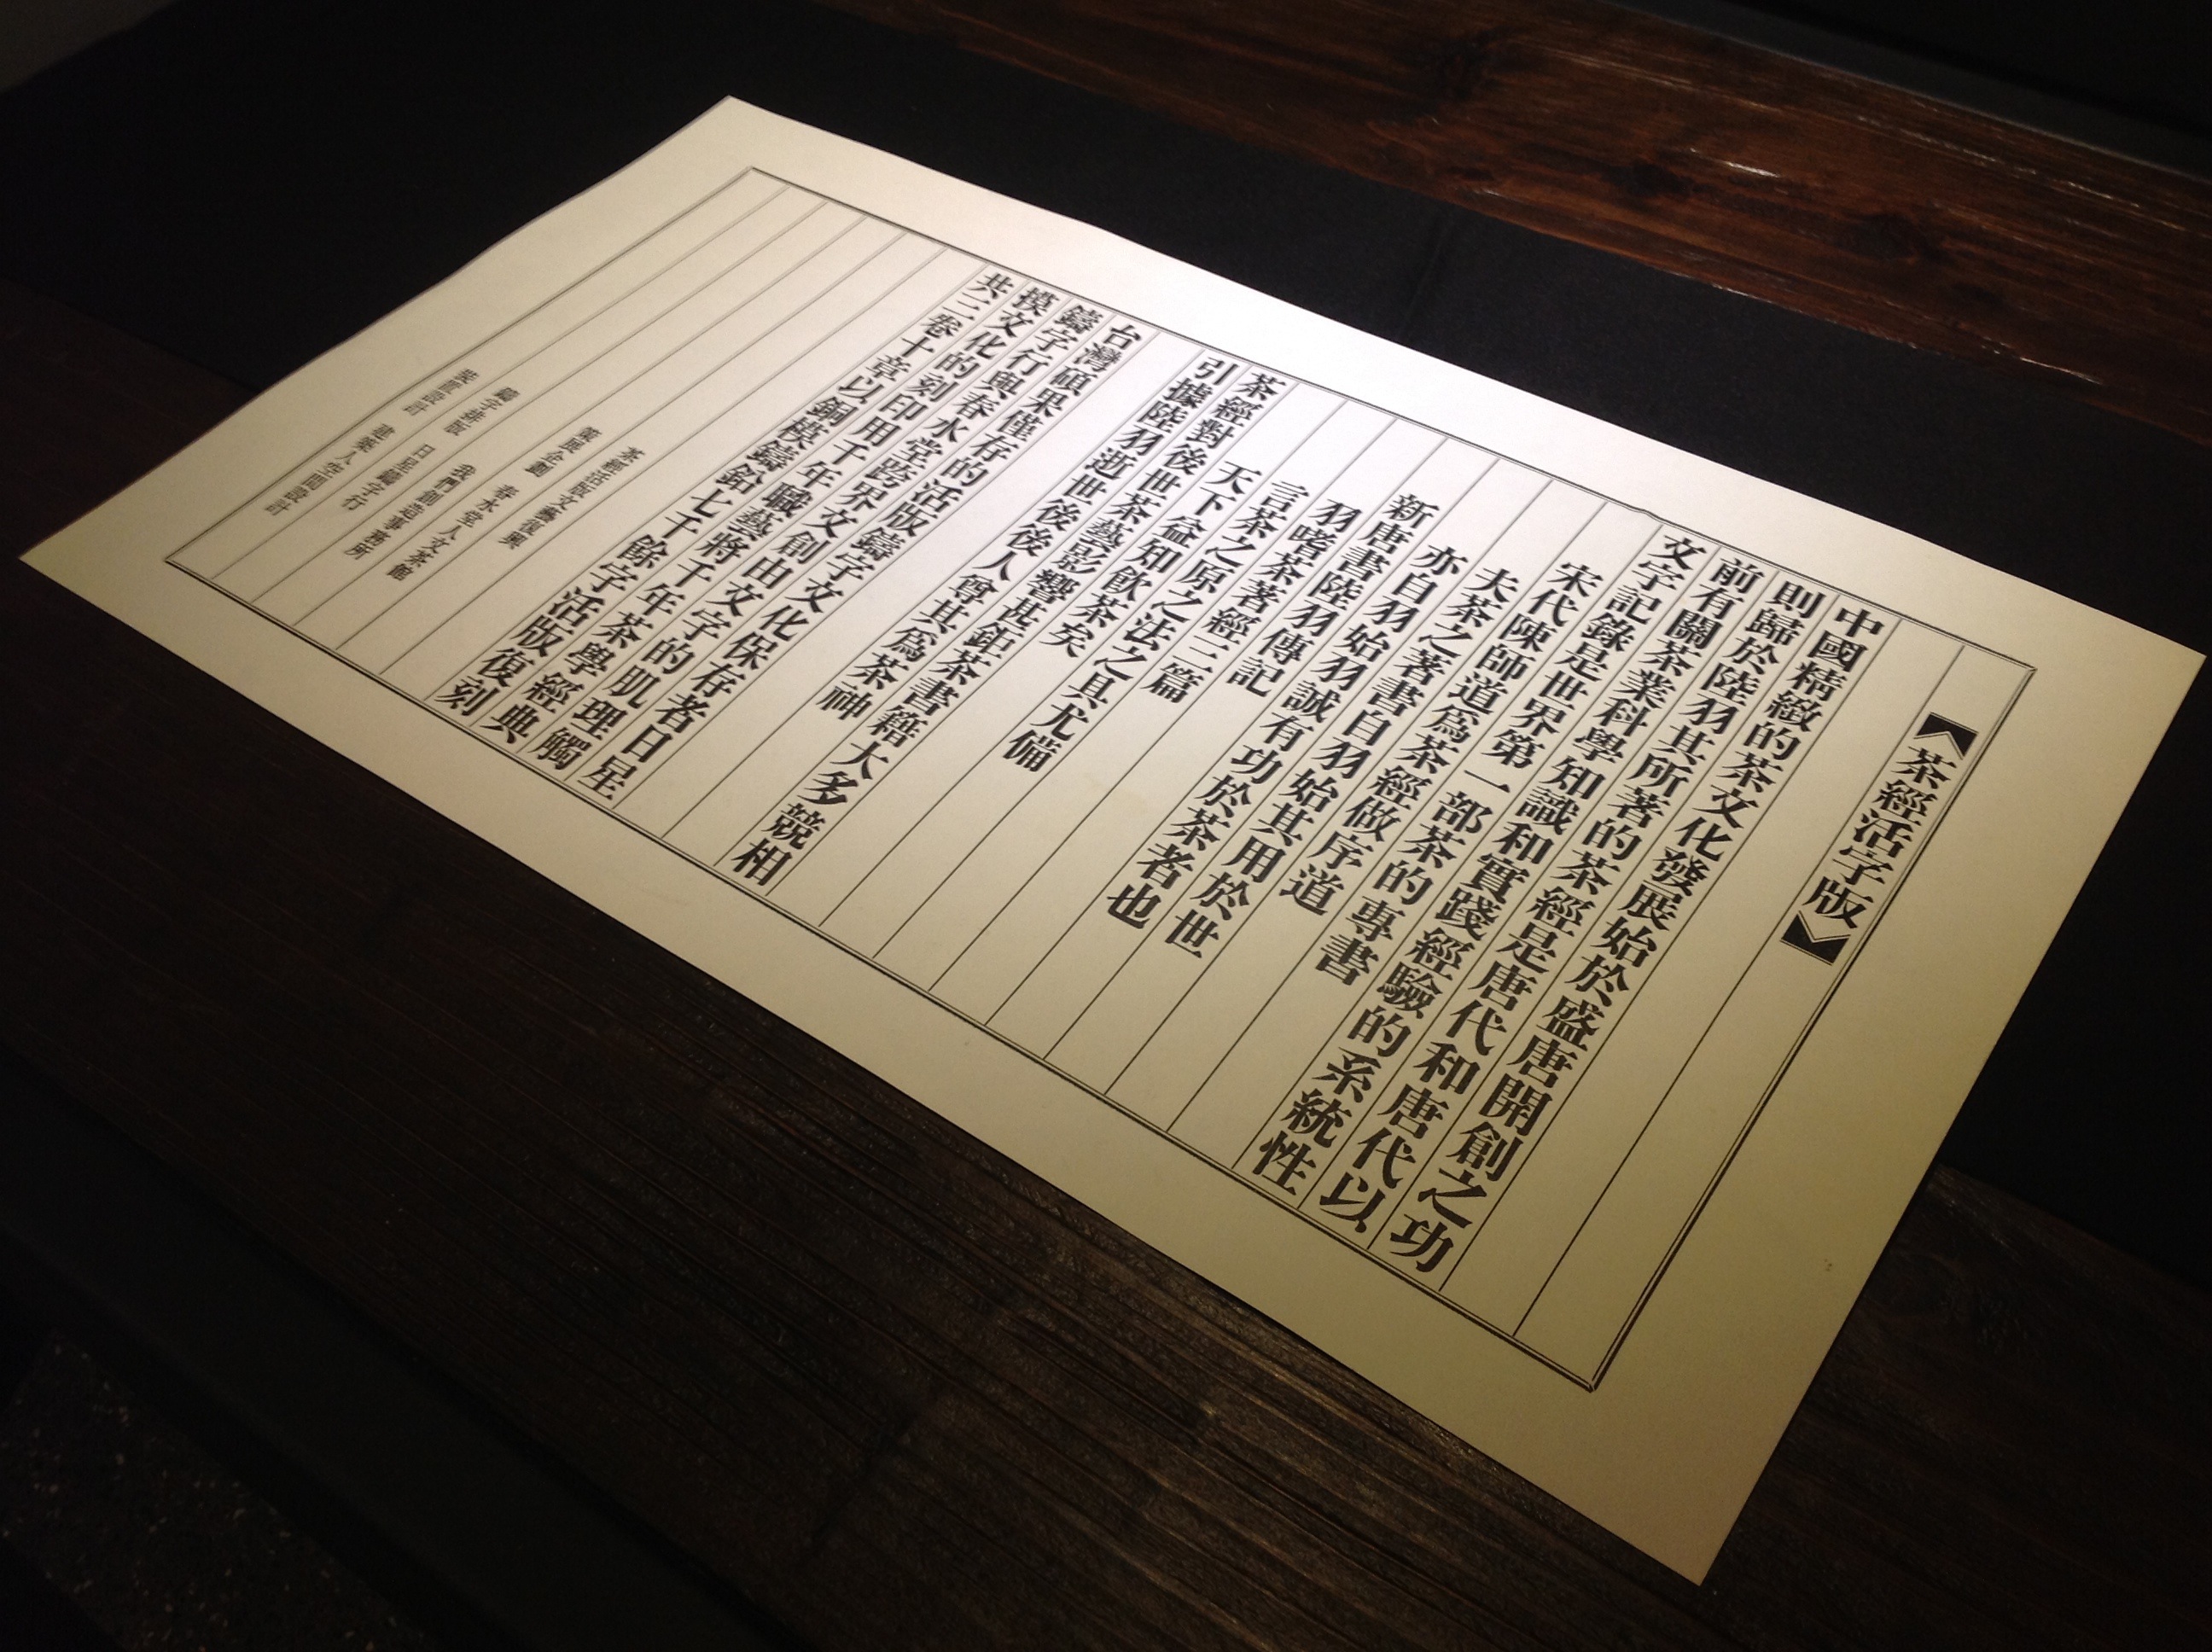 【茶經活字版】
中國精緻的茶文化發展始於盛唐開創之功
則歸於陸羽其所著的茶經是唐代和唐代以
前有關茶業科學知識和實踐經驗的系統性
文字記錄是世界第一部茶的專書
宋代陳師道爲茶經做序道
夫茶之著書自羽始其用於世
亦自羽始羽誠有功於茶者也
新唐書陸羽傳記
羽嗜茶著經三篇
言茶之原之法之具尤備
天下益知飲茶矣
茶經對後世茶藝影響甚鉅茶書籍大多競相
引據陸羽逝世後後人尊其爲茶神
台灣碩果僅存的活版鑄字文化保存者日星
鑄字行與春水堂跨界文創由文字的肌理觸
摸文化的刻印用千年職藝將千年茶學經典
共三卷十章以銅模鑄鉛七千餘字活版復刻
茶經活版文藝復興
策展企劃 春水堂人文茶館
我們創造事務所
鑄字排版 日星鑄字行
裝置設計 建築人空間設計